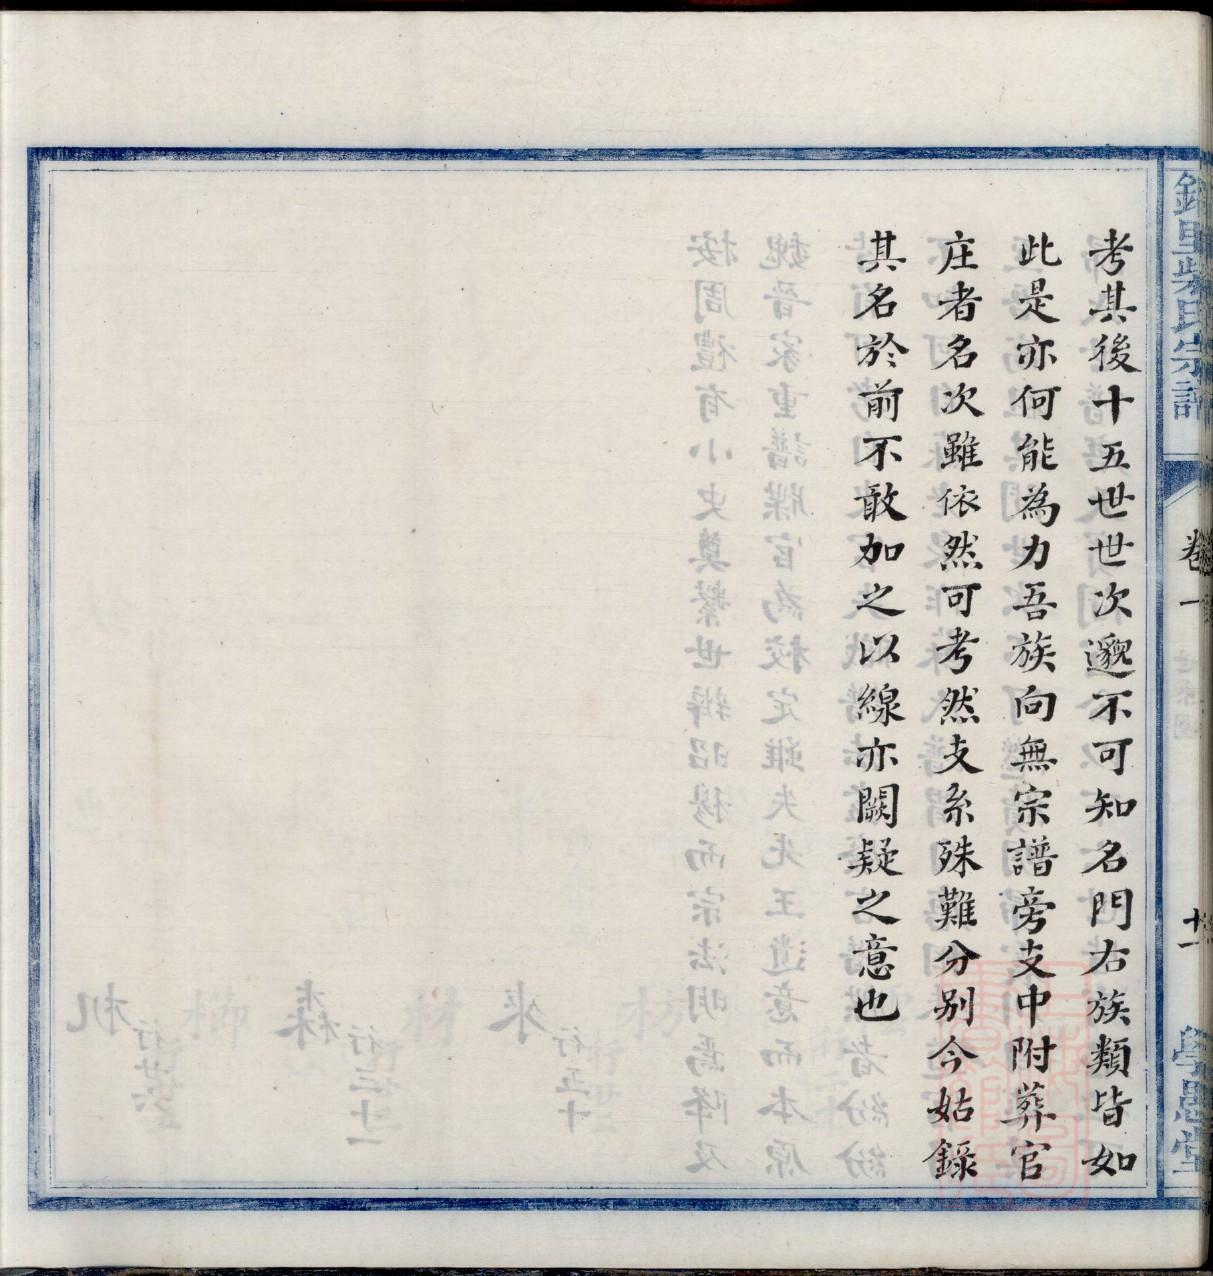 考其後十五世世次邈不可知名門右族類皆如
此是亦何能為力吾族向無宗譜旁支中附葬官
庄者名次雖依然可考然支系殊難分別今姑錄
其名於前不敢加之以線亦闕疑之意也
里柴氏宗譜
卷一
十一
學愚堂